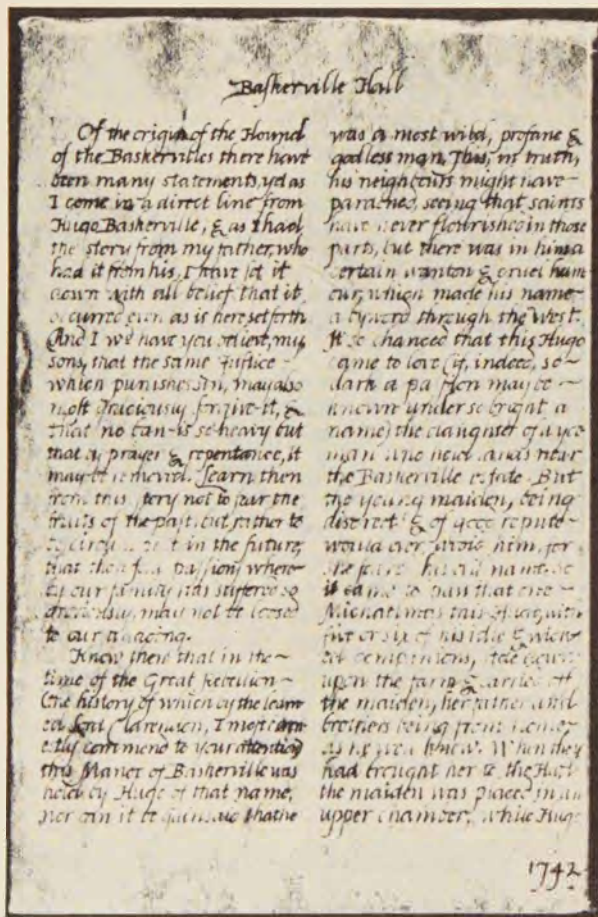 Baskerville Hall
Of the origin of the Hound
of the Baskervilles there have
been many statements, yet as
I come in a direct line from
Hugo Baskerville, & as I had
the story from my father, who
had it from his, I have set it
down with all belief that it
occurred even as is here set forth
And I we have you believe, my
sons, that the same Justice
which punishes sin, may also
most graciously forgive it, &
that no ban is so heavy but
that by prayer & repentance, it
may be removed. Learn then
from this story not to fear the
fruits of the past, but rather to
be in the future,
that passions where
by our family has suffered so
grievously may not be loosed
to our undoing.
Know then that in the ~
time of the Great Rebellion ~
(the history of which by the learn
ed Lord Clarendon, I most earn
estly commend to your attention
this Manor of Baskerville was
held by Hugo of that name,
nor can it be gainsaid that he
was a most wild, profane &
godless man. This, in truth,
his neighbours might have
pardoned, seeing that saints
have never flourished in those
parts, but there was in him a
certain wanton & cruel hum
our, which made his name
a byword through the West.
It so chanced that this Hugo
came to love (if, indeed, so
dark a passion may be ~
known under so bright a
name) the daughter of a yeo
man who held lands near
the Baskerville estate. But
the young maiden, being
discreet & of good repute
would ever avoid him, for
she his evil name. So
it came to pass that one
Michaelmas this Hugo, with
five or six of his idle & wick
ed companions, stole down
upon the farm & carried off
the maiden, her father and
brothers being from home,
as he knew. When they
had brought her to the Hall
the maiden was placed in an
upper chamber, while Hugo
1742